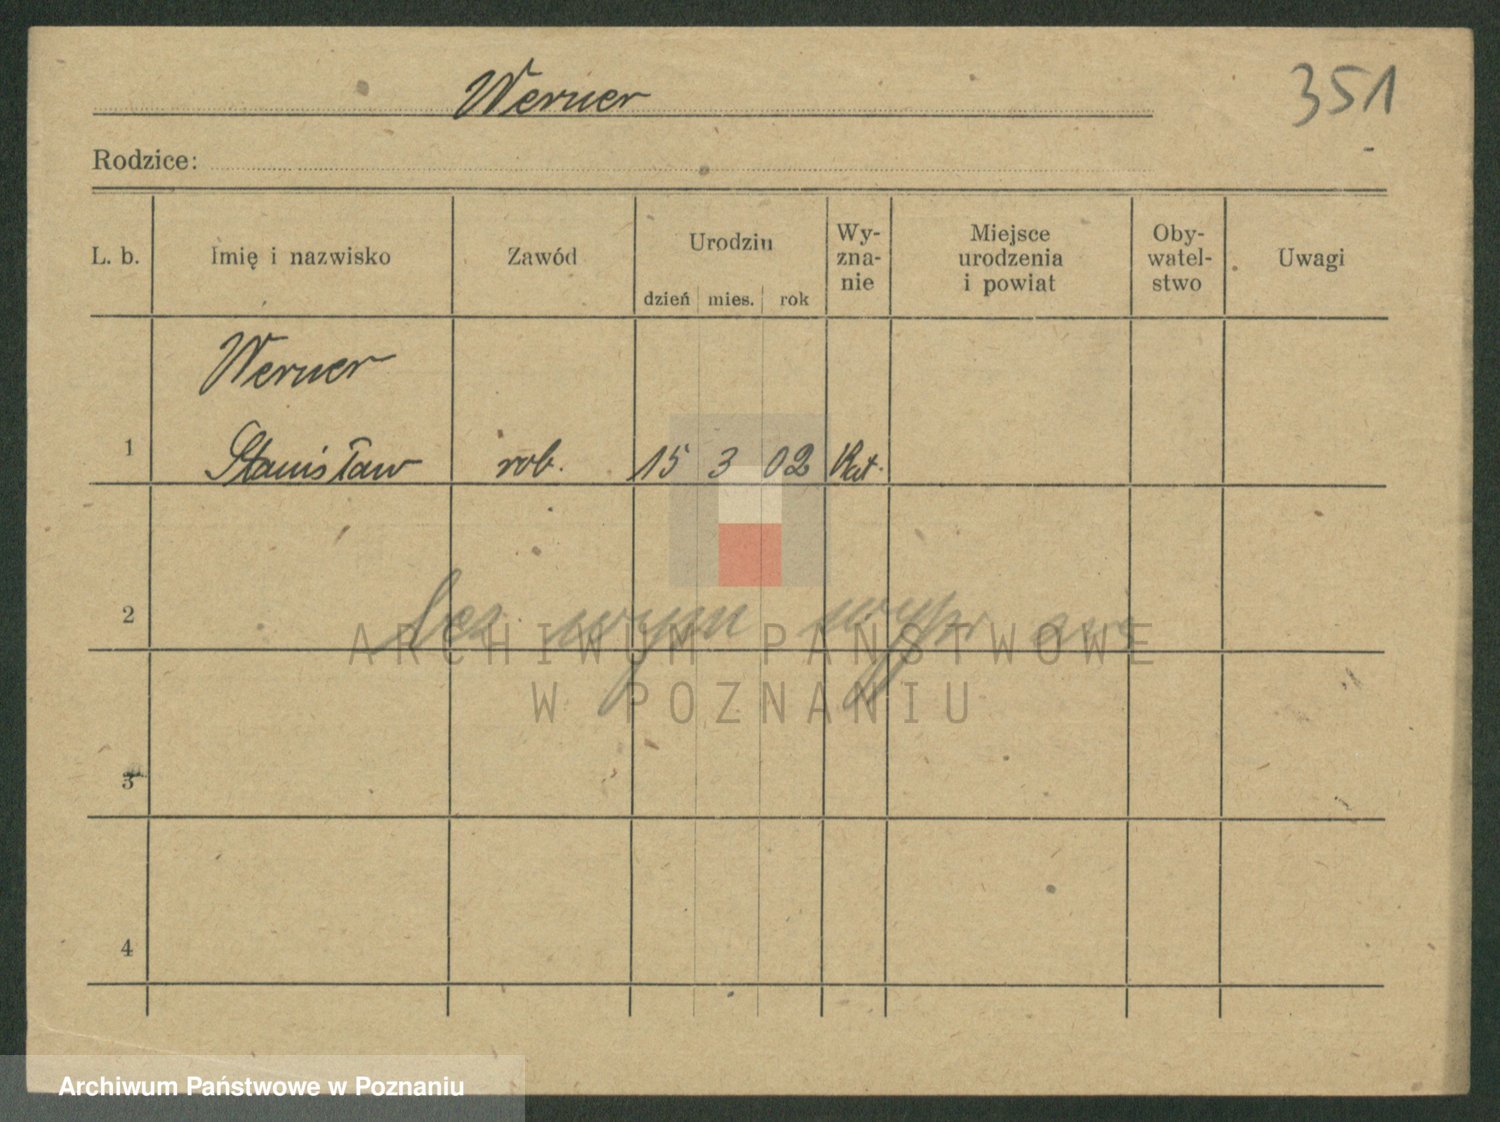 Werner
351
Rodzice:
L. b.
Imię i nazwisko
Zawód
Urodziu
dzień mies. rok
Wy-
zna-
nie
Miejsce
urodzenia
i powiat
Oby-
watel-
stwo
Uwagi
Werner
1 Stanisław rob. 15 3 02 Kat.
2
bez
ARCHIWUM PAŃSTWOWE
W POZNANIU
3
4
Archiwum Państwowe w Poznaniu